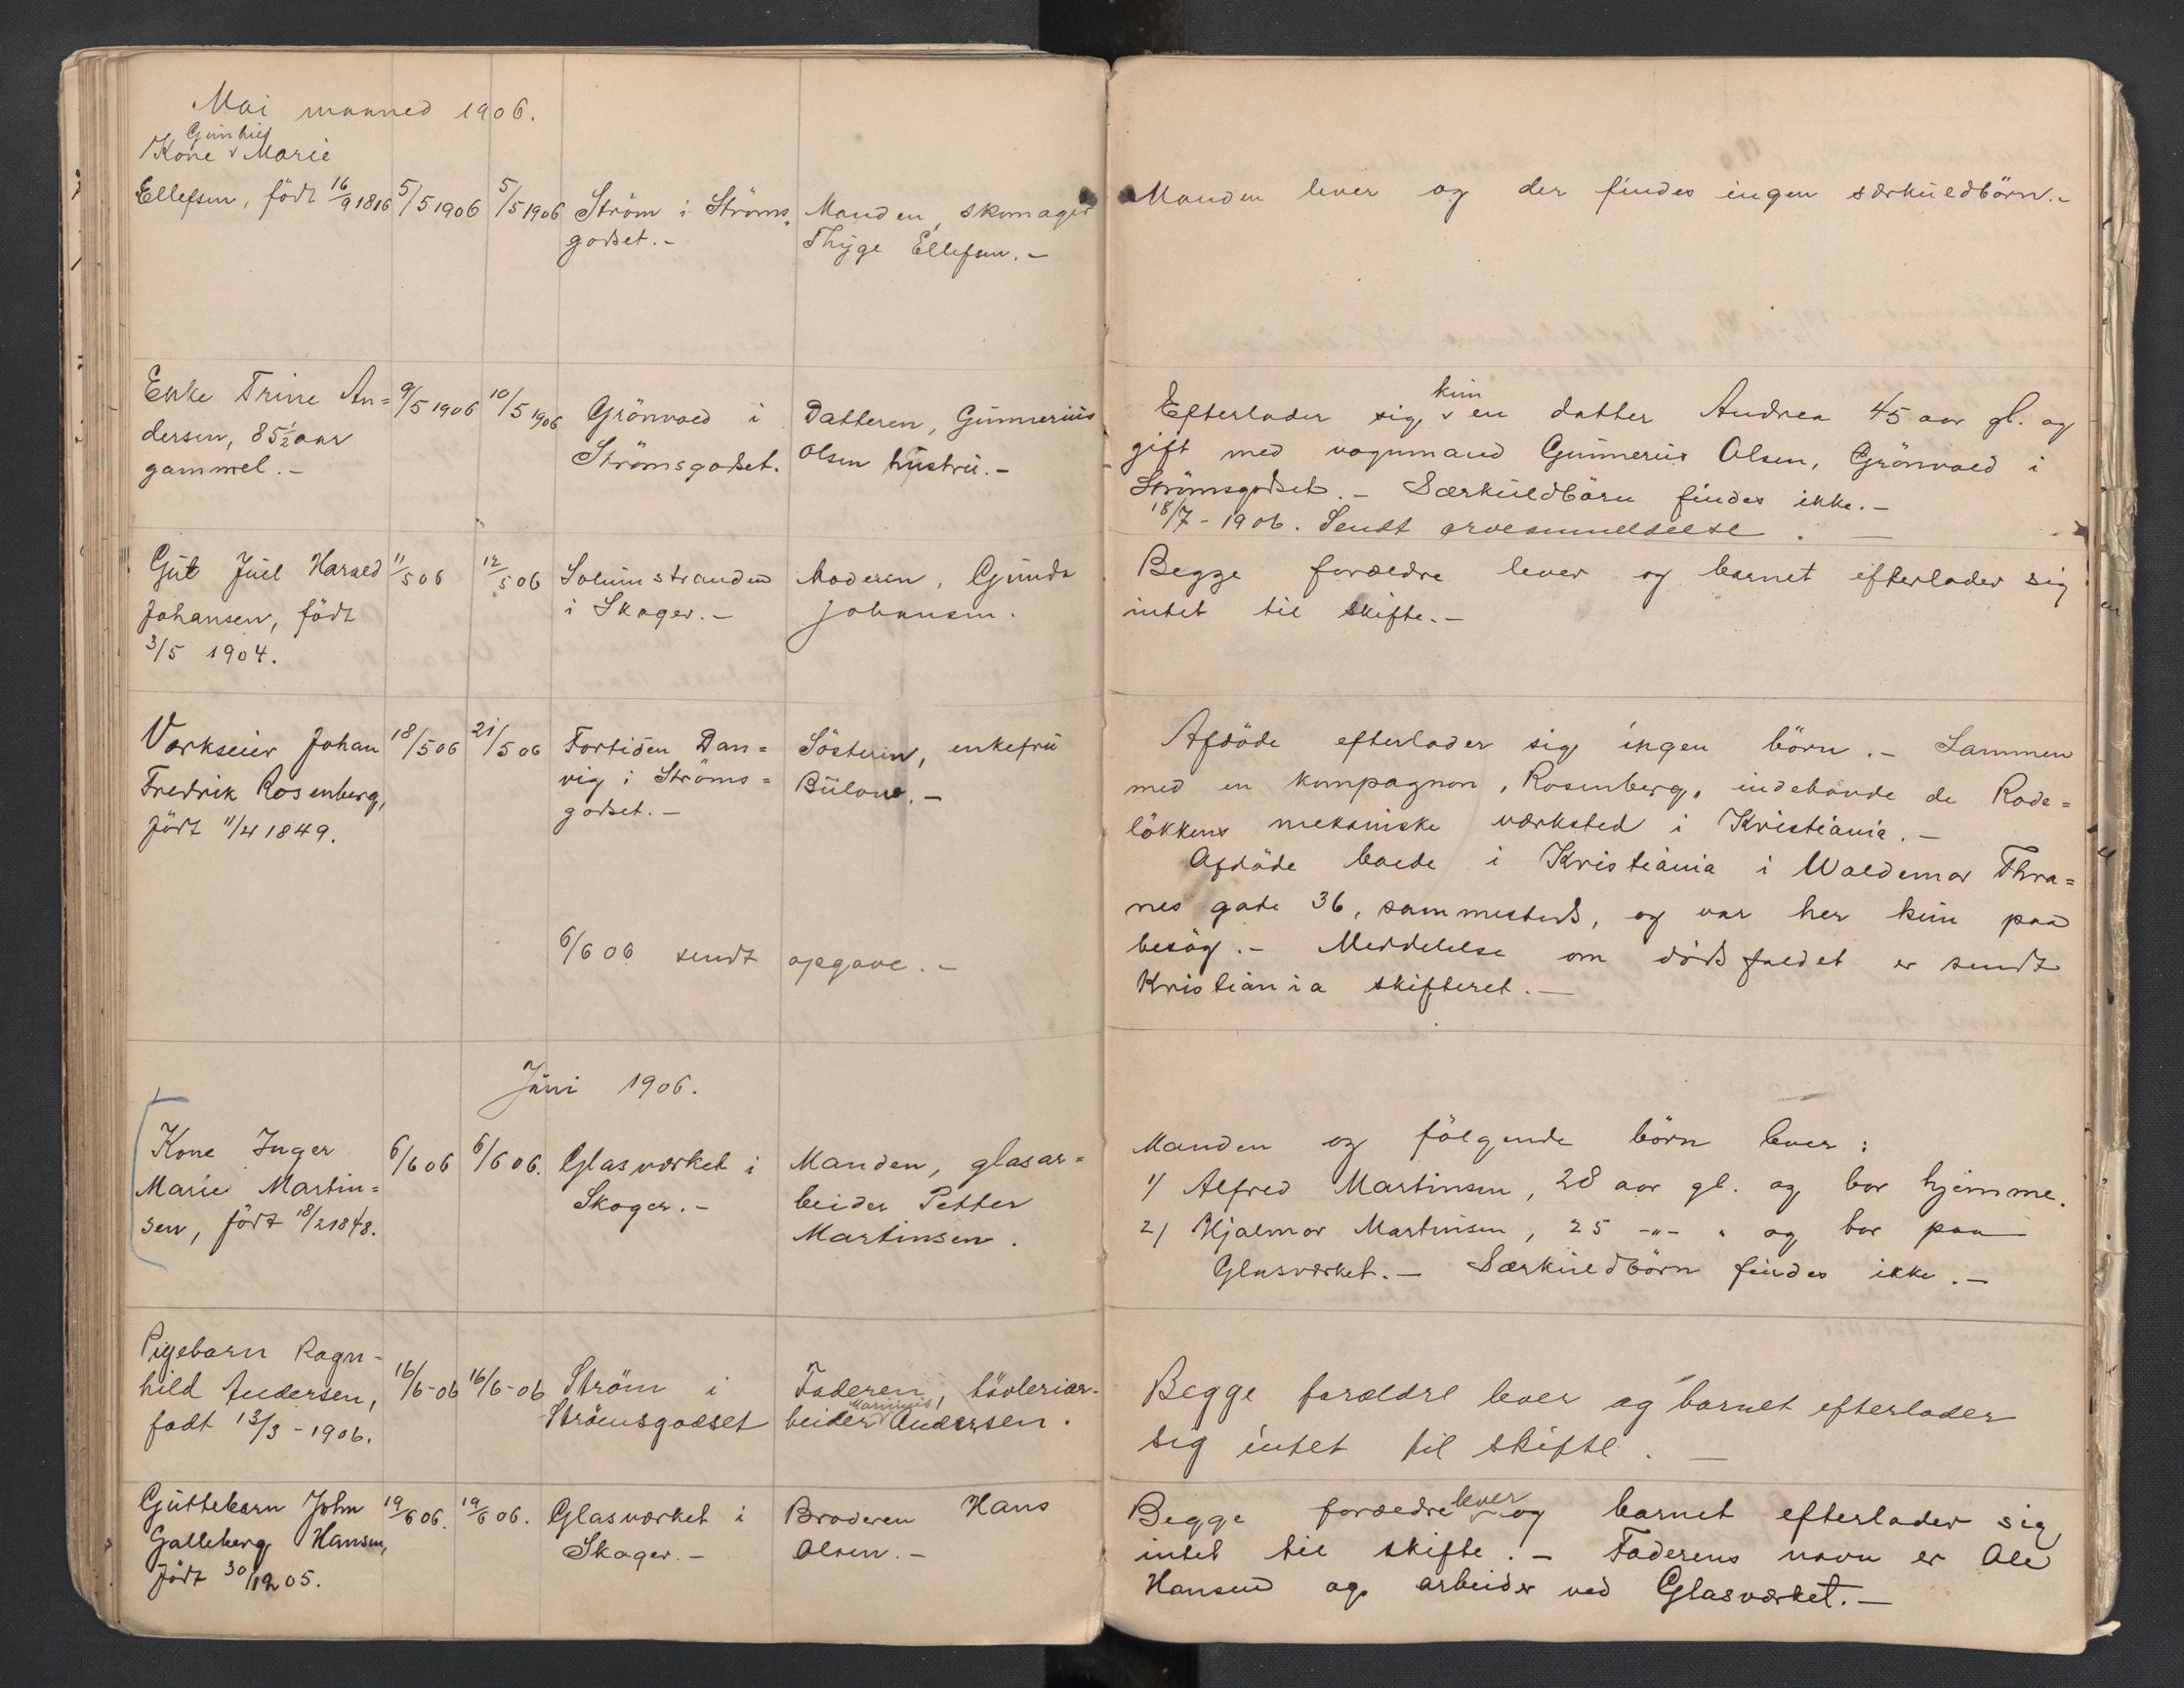 Mai maaned 1906.
Gunhild
Kone v Marie
Ellefsen, födt 16/9 1816
5/5 1906
5/5 1906
Ström i Ströms-
godset.-
Manden, skomager
Thyge Ellefsen.-
Manden lever og der findes ingen særkuldbörn.-
Enke Trine An=
dersen, 85½ aar
gammel.-
9/5 1906
10/5 1906
Grönvold i
Strömsgodset.
Datteren, Gunnerius
Olsen hustru.-
kun
Efterlader sig v en datter Andrea 45 aar gl. og
gift med vognmand Gunnerius Olsen, Grönvold i
Strömsgodset.- Særkuldbörn findes ikke.-
18/7-1906. Sendt arveanmeldelse.—
Gut Juel Harald
Johansen, födt
3/5 1904.
11/5 06
12/5 06
Solumstranden
i Skoger.-
Moderen, Gunda
Johansen.
Begge forældre lever og barnet efterlader sig
intet til skifte.-
Værkseier Johan
Fredrik Rosenberg,
födt 11/4 1849.
18/5 06
21/5 06
Fortiden Dan=
vig i Ströms=
godset.-
Sösteren, enkefru
Bülow.-
6/6 06 sendt opgave.-
Afdöde efterlader sig ingen börn.- Sammen
med en kompagnon, Rosenberg, indehavde de Rode=
lökkens mekaniske værksted i Kristiania.-
Afdöde boede i Kristiania i Waldemar Thra=
nes gade 36, sammesteds, og var her kun paa
besög.- Meddelelse om dödsfaldet er sendt
Kristiania skifteret.—
Juni 1906.
Kone Inger
Marie Martin=
sen, födt 18/2 1848.
6/6 06
6/6 06.
Glasværket i
Skoger.-
Manden, glasar=
beider Petter
Martinsen.
Manden og fölgende börn lever:
1/ Alfred Martinsen, 28 aar gl. og bor hjemme.
2/ Hjalmar Martinsen, 25 -"- " og bor paa
Glasværket.- Særkuldbörn findes ikke.-
Pigebarn Ragn-
hild Andersen,
født 13/3-1906.
16/6-06
16/6-06
Ström i
Strömsgodset
Faderen, hövleriar-
Marinius,
beider Andersen.
Begge forældre lever og barnet efterlader
sig intet til skifte.—
Guttebarn John
Galleberg Hansen,
födt 30/12 05.
19/6 06.
19/6 06.
Glasværket i
Skoger.-
Broderen Hans
Olsen.-
lever
Begge forældre v og barnet efterlader sig
intet til skifte.- Faderens navn er Ole
Hansen og arbeider ved Glasværket.-